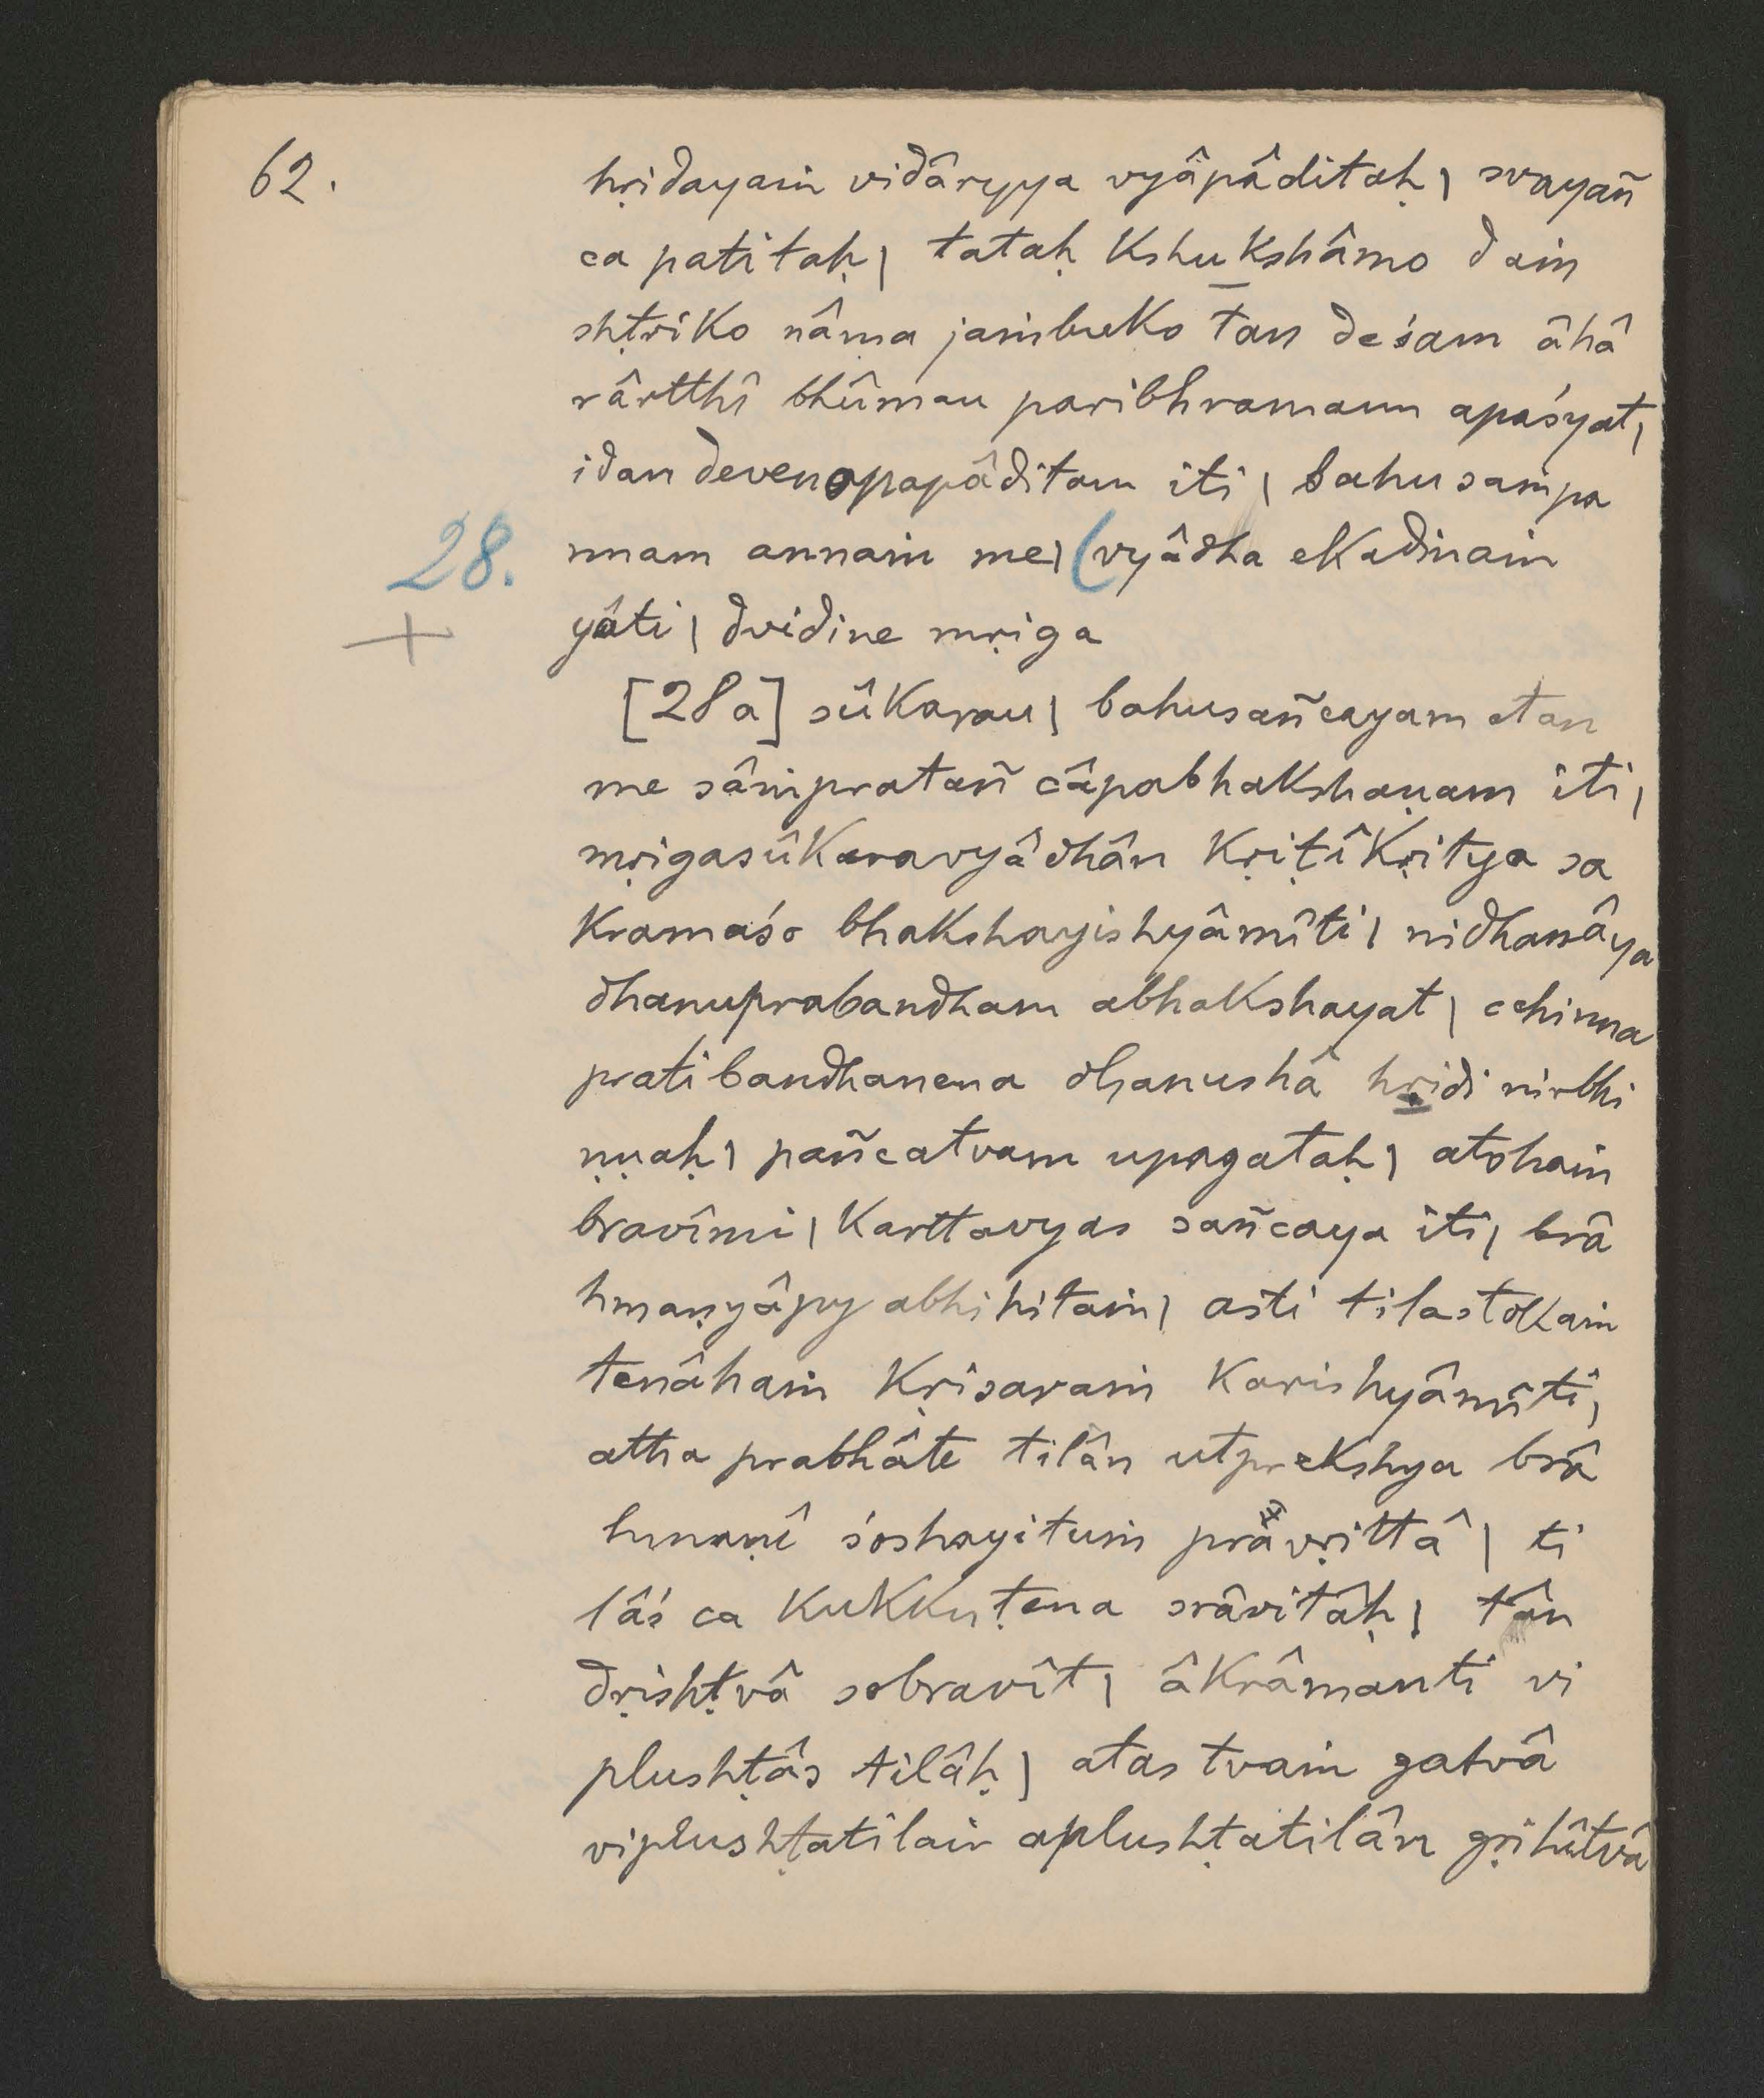 62.
hṛidayaṁ vidâryya vyâpâditaḥ | svayañ
ca patitaḥ | tataḥ kshukshâmo daṁ
shṭriko nâma jaṁbuko tan deśam âhâ
rârtthî bhûmau paribhramann apaśyat |
idan devenopapâditam iti | bahusaṁpa
28. nnam annaṁ me | (vyâdha ekadinaṁ
+ yâti | dvidine mṛiga
[28a] sûkarau | bahusañcayam etan
me sâṁpratañ câpabhakshaṇam iti |
mṛigasûkaravyâdhân kṛiṭîkṛitya sa
kramaśo bhakshayishyâmîti | nidhanâya
dhanuprabandham abhakshayat | cchinna
pratibandhanena dhanushâ hṛidi nirbhi
ṇṇaḥ | pañcatvam upagataḥ | atohaṁ
bravîmi | karttavyas sañcaya iti | brâ
hmaṇyâpy abhihitaṁ | asti tilastokaṁ
tenâhaṁ kṛisaraṁ karishyâmîti |
atha prabhâte tilân utprekshya brâ
hmaṇî śoshayituṁ pravṛittâ | ti
lâś ca kukkuṭena srâvitâḥ | tân
dṛishṭvâ sobravît | âkrâmanti vi
plushṭâs tilâḥ | atas tvaṁ gatvâ
viplushṭatilair aplushṭatilân gṛihîtvâ